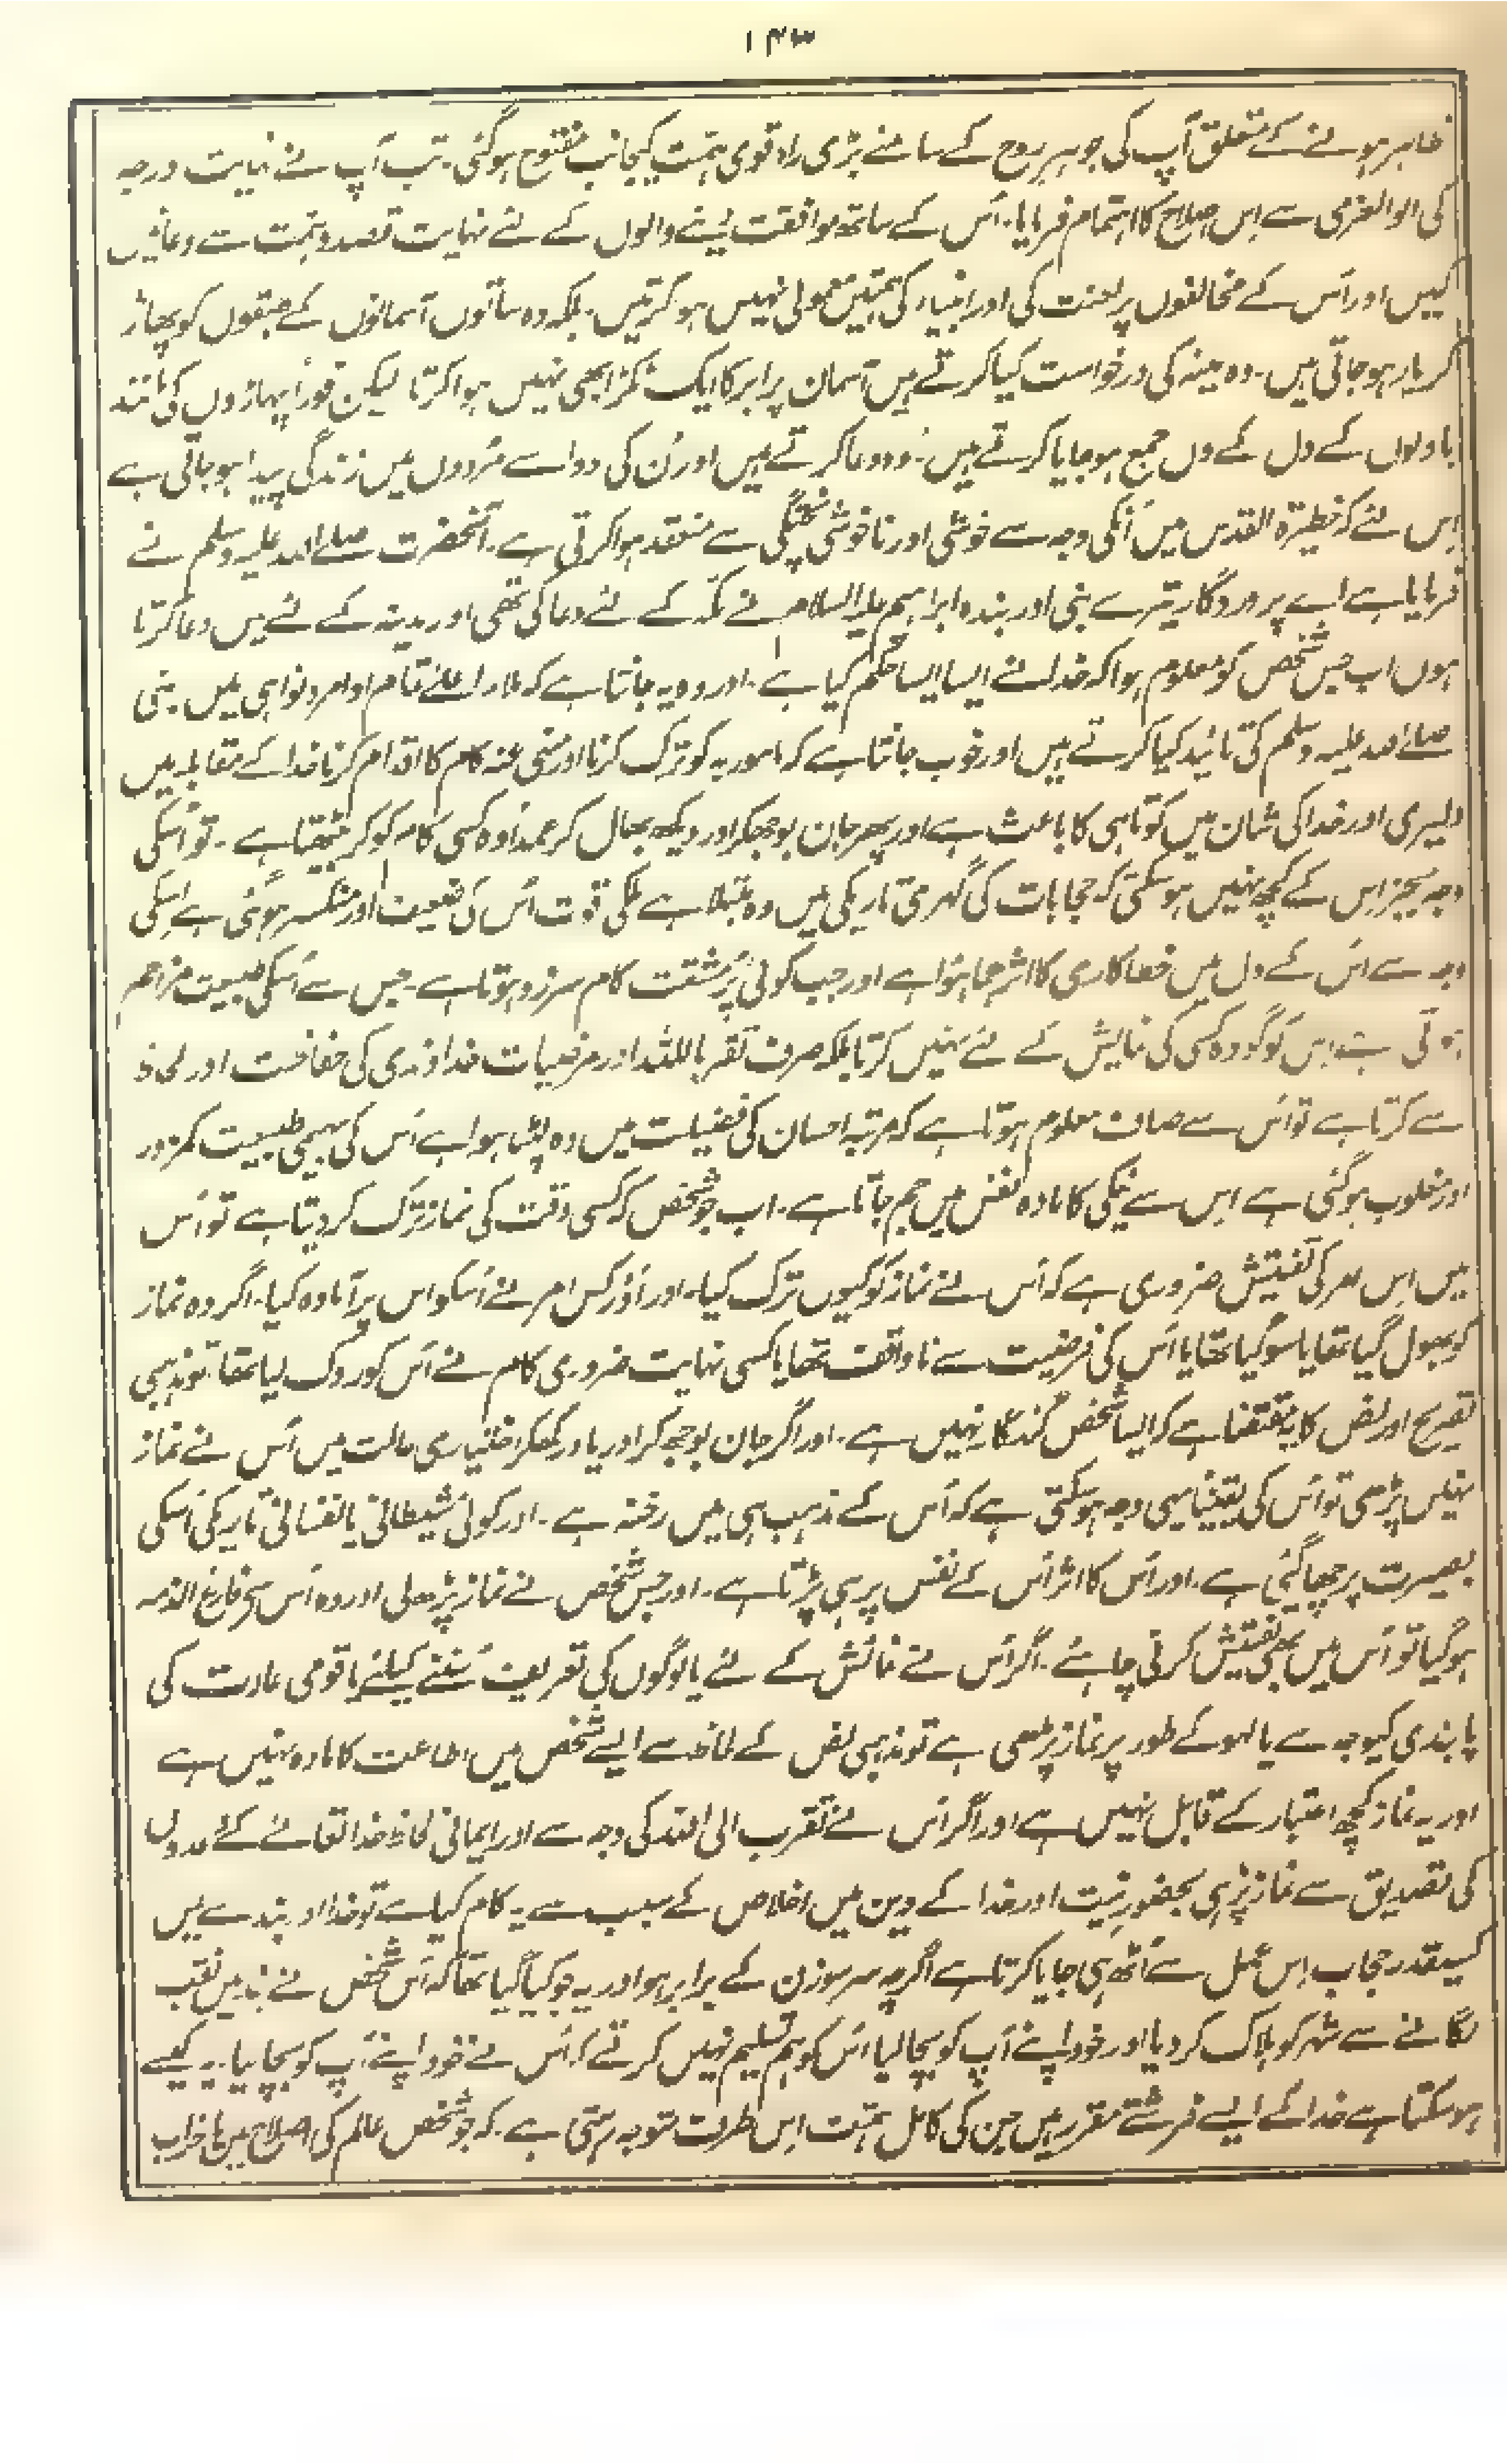 ۱۴۳
ظاہر ہونے کے متعلق آپ کی جوہر روح کے سامنے بڑی راہ قوی ہمت کیجانب مفتوح ہوگئی۔ تب آپ نے نہایت درجہ
کی اولوالعزمی سے اِس اصلاح کا اہتمام فرمایا۔ اُس کے ساتھ موافقت کرنے والوں کے لئے نہایت قصد و ہمت سے دعائیں
کیں اور اُس کے مخالفوں پر لعنت کی اور انبیاء کی ہمتیں معمولی نہیں ہو کرتیں۔ بلکہ وہ ساتوں آسمانوں کے طبقوں کو پھاڑ
کر پار ہو جاتی ہیں۔ وہ مینہ کی درخواست کیا کرتے ہیں آسمان پر ابر کا ایک ٹکڑا بھی نہیں ہوا کرتا لیکن فوراً پہاڑوں کی مانند
بادلوں کے دل کے دل جمع ہو جایا کرتے ہیں۔ وہ دعا کرتے ہیں اور اُن کی دعا سے مُردوں میں زندگی پیدا ہو جاتی ہے
اِس لئے کہ خطیرۃ القدس میں اُنکی وجہ سے خوشی اور ناخوشی پختگی سے منعقد ہوا کرتی ہے۔ آنحضرت صلے اللہ علیہ وسلم نے
فرمایا ہے اے پروردگار تیرے نبی اور بندہ ابراہیم علیہ السلام نے مکہ کے لئے دعا کی تھی اور مدینہ کے لئے میں دعا کرتا
ہوں اب جس شخص کو معلوم ہوا کہ خدا نے ایسا ایسا حکم کیا ہے۔ اور وہ یہ جانتا ہے کہ ملاء اعلےٰ تمام اوامر و نواہی میں۔ نبی
صلے اللہ علیہ وسلم کی تائید کیا کرتے ہیں اور خوب جانتا ہے کہ مامور بہ کو ترک کرنا اور منہی عنہ کام کا اقدام کرنا خدا کے مقابلہ میں
دلیری اور خدا کی شان میں کوتاہی کا باعث ہے اور پھر جان بوجھکر اور دیکھ بھال کر عمداً وہ کسی کام کو کر بیٹھتا ہے۔ تو اُسکی
وجہ بجز اِس کے کچھ نہیں ہو سکتی کہ حجابات کی گہری تاریکی میں وہ مبتلا ہے ملکی قوت اُس کی ضعیف اور منکسر ہوگئی ہے اِسکی
وجہ سے اُس کے دل میں خطاکاری کا اثر جما ہوا ہے اور جب کوئی پُر مشقت کام سرزد ہوتا ہے۔ جس سے اُسکی طبیعت مزاحم
ہوتی ہے اس کو گو وہ کسی کی نمایش کے لئے نہیں کرتا بلکہ صرف تقرب باللہ اور مرضیات خداوندی کی حفاظت اور لحاظ
سے کرتا ہے تو اُس سے صاف معلوم ہوتا ہے کہ مرتبہ احسان کی فضیلت میں وہ لپٹا ہوا ہے اُس کی بہیمی طبیعت کمزور
اور مغلوب ہوگئی ہے اِس سے نیکی کا مادہ نفس میں جم جاتا ہے۔ اب جو شخص کہ کسی وقت کی نماز ترک کر دیتا ہے تو اُس
میں اِس امر کی تفتیش ضروری ہے کہ اُس نے نماز کو کیوں ترک کیا۔ اور اَوْر کس امر نے اُسکو اس پر آمادہ کیا۔ اگر وہ نماز
کو بھول گیا تھا یا سو گیا تھا یا اُس کی فرضیت سے ناواقف تھا یا کسی نہایت ضروری کام نے اُس کو روک لیا تھا تو مذہبی
تصریح اور نص کا یہ مقتضا ہے کہ ایسا شخص گنہگار نہیں ہے۔ اور اگر جان بوجھ کر اور یاد رکھکر اختیاری حالت میں اُس نے نماز
نہیں پڑھی تو اُس کی یقیناً یہی وجہ ہو سکتی ہے کہ اُس کے مذہب ہی میں رخنہ ہے۔ اور کوئی شیطانی یا نفسانی تاریکی اُسکی
بصیرت پر چھا گئی ہے۔ اور اُس کا اثر اُس کے نفس پر ہی پڑتا ہے۔ اور جس شخص نے نماز پڑھ لی اور وہ اُس سے فارغ الذمہ
ہو گیا تو اُس میں بھی تفتیش کرنی چاہئے۔ اگر اُس نے نمائش کے لئے یا لوگوں کی تعریف سُننے کیلئے یا قومی عادت کی
پابندی کیوجہ سے یا لہو کے طور پر نماز پڑھی ہے تو مذہبی نص کے لحاظ سے ایسے شخص میں اطاعت کا مادہ نہیں ہے
اور یہ نماز کچھ اعتبار کے قابل نہیں ہے اور اگر اُس نے تقرب الی اللہ کی وجہ سے اور ایمانی لحاظ خدا تعالےٰ کے وعدوں
کی تصدیق سے نماز پڑہی بحضور نیت اور خدا کے دین میں اخلاص کے سبب سے یہ کام کیا ہے تو خدا اور بندے میں
کسیقدر حجاب اِس عمل سے اُٹھ ہی جایا کرتا ہے اگرچہ سر سوزن کے برابر ہو اور یہ جو کہا گیا تھا کہ اُس شخص نے بند میں نقب
لگانے سے شہر کو ہلاک کر دیا اور خود اپنے آپ کو بچا لیا اُس کو ہم تسلیم نہیں کرتے کہ اُس نے خود اپنے آپ کو بچا لیا۔ یہ کیسے
ہو سکتا ہے خدا کے ایسے فرشتے مقرر ہیں جن کی کامل ہمت اِس طرف متوجہ رہتی ہے۔ کہ جو شخص عالم کی اصلاح میں یا خراب